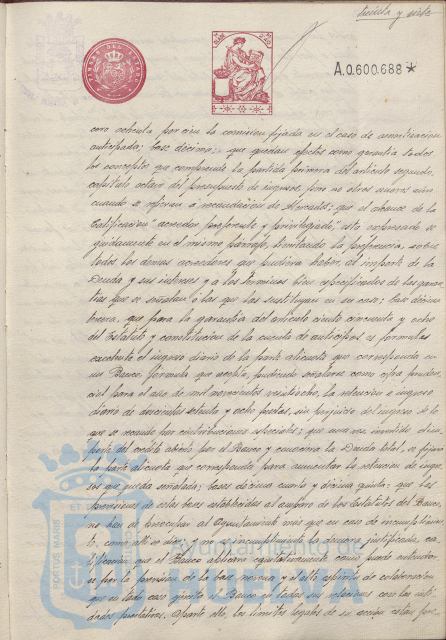 treinta y siete
A.0.600.688*
cero ochenta por cien la comision fijada en el caso de amortizacion
anticipada; base décima; que quedan afectos como garantía todos
los conceptos que comprende la partida primera del artículo segundo,
capítulo octavo del presupuesto de ingresos, pero no otros nuevos aún
cuando se refieran a recaudacion de Mercado; que el alcance de la
calificacion "acreedor preferente y privilegiado", esta expresado se
guidamente en el mismo párrafo, limitando la preferencia, sobre
todos los demas acreedores que pudiera haber, al importe de la
Deuda y sus intereses y a los términos bien especificados de las garan
tías que se señalan o las que las sustituyan en su caso; base décimo
tercera, que para la garantía del artículo ciento cincuenta y ocho
del Estatuto y constitucion de la cuenta de anticipos se formula
mediante el ingreso diario de la parte alícuota que corresponda en
un Banco, fórmula que acepta, pudiendo señalarse como cifra pruden
cial para el año de mil novecientos veintiocho, la retencion e ingreso
diario de doscientas setenta y ocho pesetas, sin perjuicio del ingreso de lo
que se recaude por contribuciones especiales; que una vez invertido el im
porte del crédito abierto por el Banco y conocida la Deuda total, se fijará
la parte alícuota que corresponda para aumentar la retencion de ingre
sos que queda señalada; bases décima cuarta y décima quinta: que las
previsiones de estas bases establecidas al amparo de los Estatutos del Banco,
no han de preocupar al Ayuntamiento mas que en caso de incumplimien
to, como allí se dice; y no es incumplimiento la demora justificada, ca
lificacion que el Banco aplicará equitativamente como puede entender
se por la prevision de la base novena y el alto espíritu de colaboracion
que en todo caso ejercita el Banco en todas sus relaciones con las enti
dades prestatarias. Aparte ello, los límites legales de su accion están per
PORTUS MARIS ET
Ayuntamiento de
HUELVA